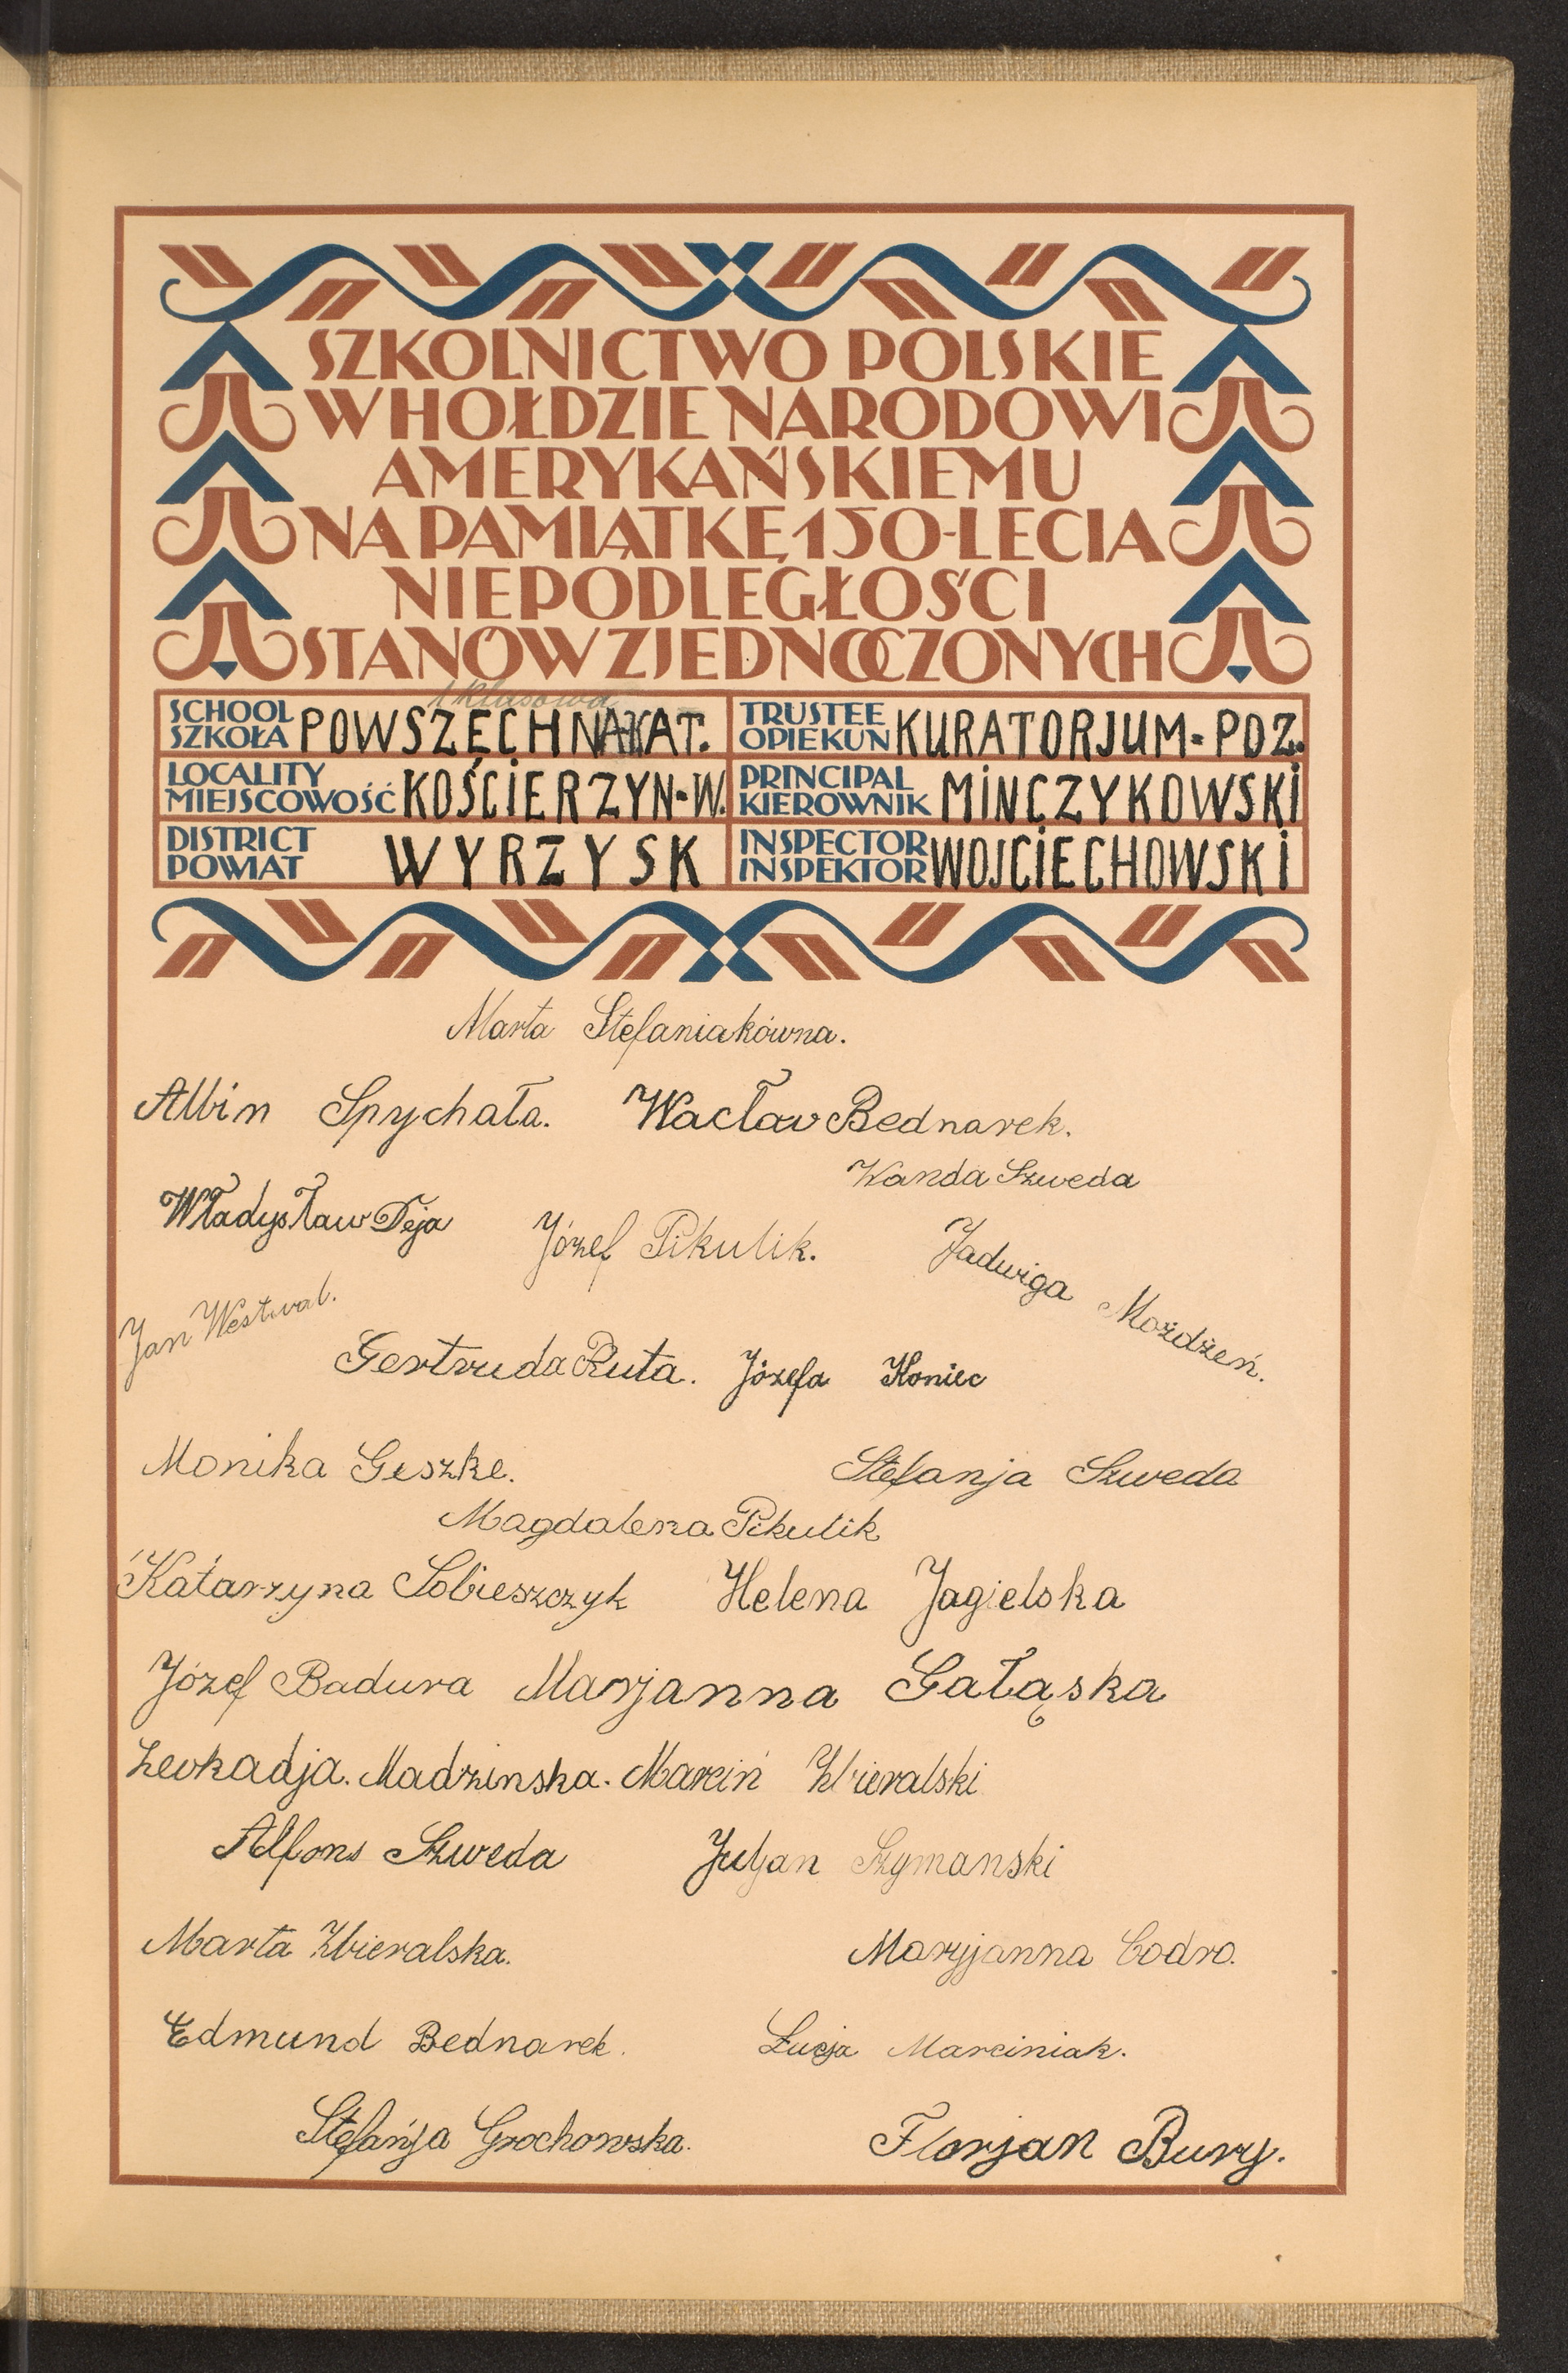 SZKOLNICTWO POLSKIE
W HOŁDZIE NARODOWI
AMERYKAŃSKIEMU
NA PAMIĄTKĘ 150-LECIA
NIEPODLEGŁOŚCI
STANÓW ZJEDNOCZONYCH
1 klasowa
SCHOOL SZKOŁA POWSZECHNA KAT.
TRUSTEE OPIEKUN KURATORJUM-POZ.
LOCALITY MIEJSCOWOŚĆ KOŚCIERZYN-W.
PRINCIPAL KIEROWNIK MINCZYKOWSKI
DISTRICT POWIAT WYRZYSK
INSPECTOR INSPEKTOR WOJCIECHOWSKI
Marta Stefaniakówna.
Albin Spychała. Wacław Bednarek.
Wanda Szweda
Władysław Deja Józef Pikulik. Jadwiga Możdżeń.
Jan Westwal.
Gertruda Ruta. Józefa Koniec
Monika Geszke. Stefanja Szweda
Magdalena Pikulik
Katarzyna Sobieszczyk Helena Jagielska
Józef Badura Marjanna Gałąska
Leokadja. Madzinska. Marcin Zbieralski
Alfons Szweda Juljan Szymanski
Marta Zbieralska. Maryjanna Codro.
Edmund Bednarek. Łucja Marciniak.
Stefańja Grochowska. Florjan Bury.